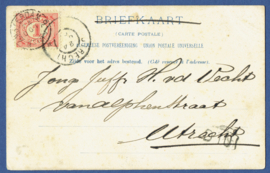 BRIEFKAART
(CARTE POSTALE)
ALGEMEENE POSTVEREENIGING UNION POSTALE UNIVERSELLE
Zijde voor het adres bestemd. (Côté réservé à l'adresse.)
Jong Juff H. vd Vecht
van Alphenstraat
Utrecht